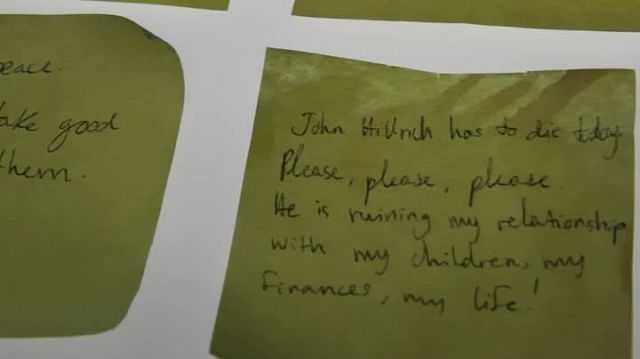 peace.
take good
them.
John Hillrich has to die today
Please, please, please.
He is ruining my relationship
with my children, my
finances, my life!